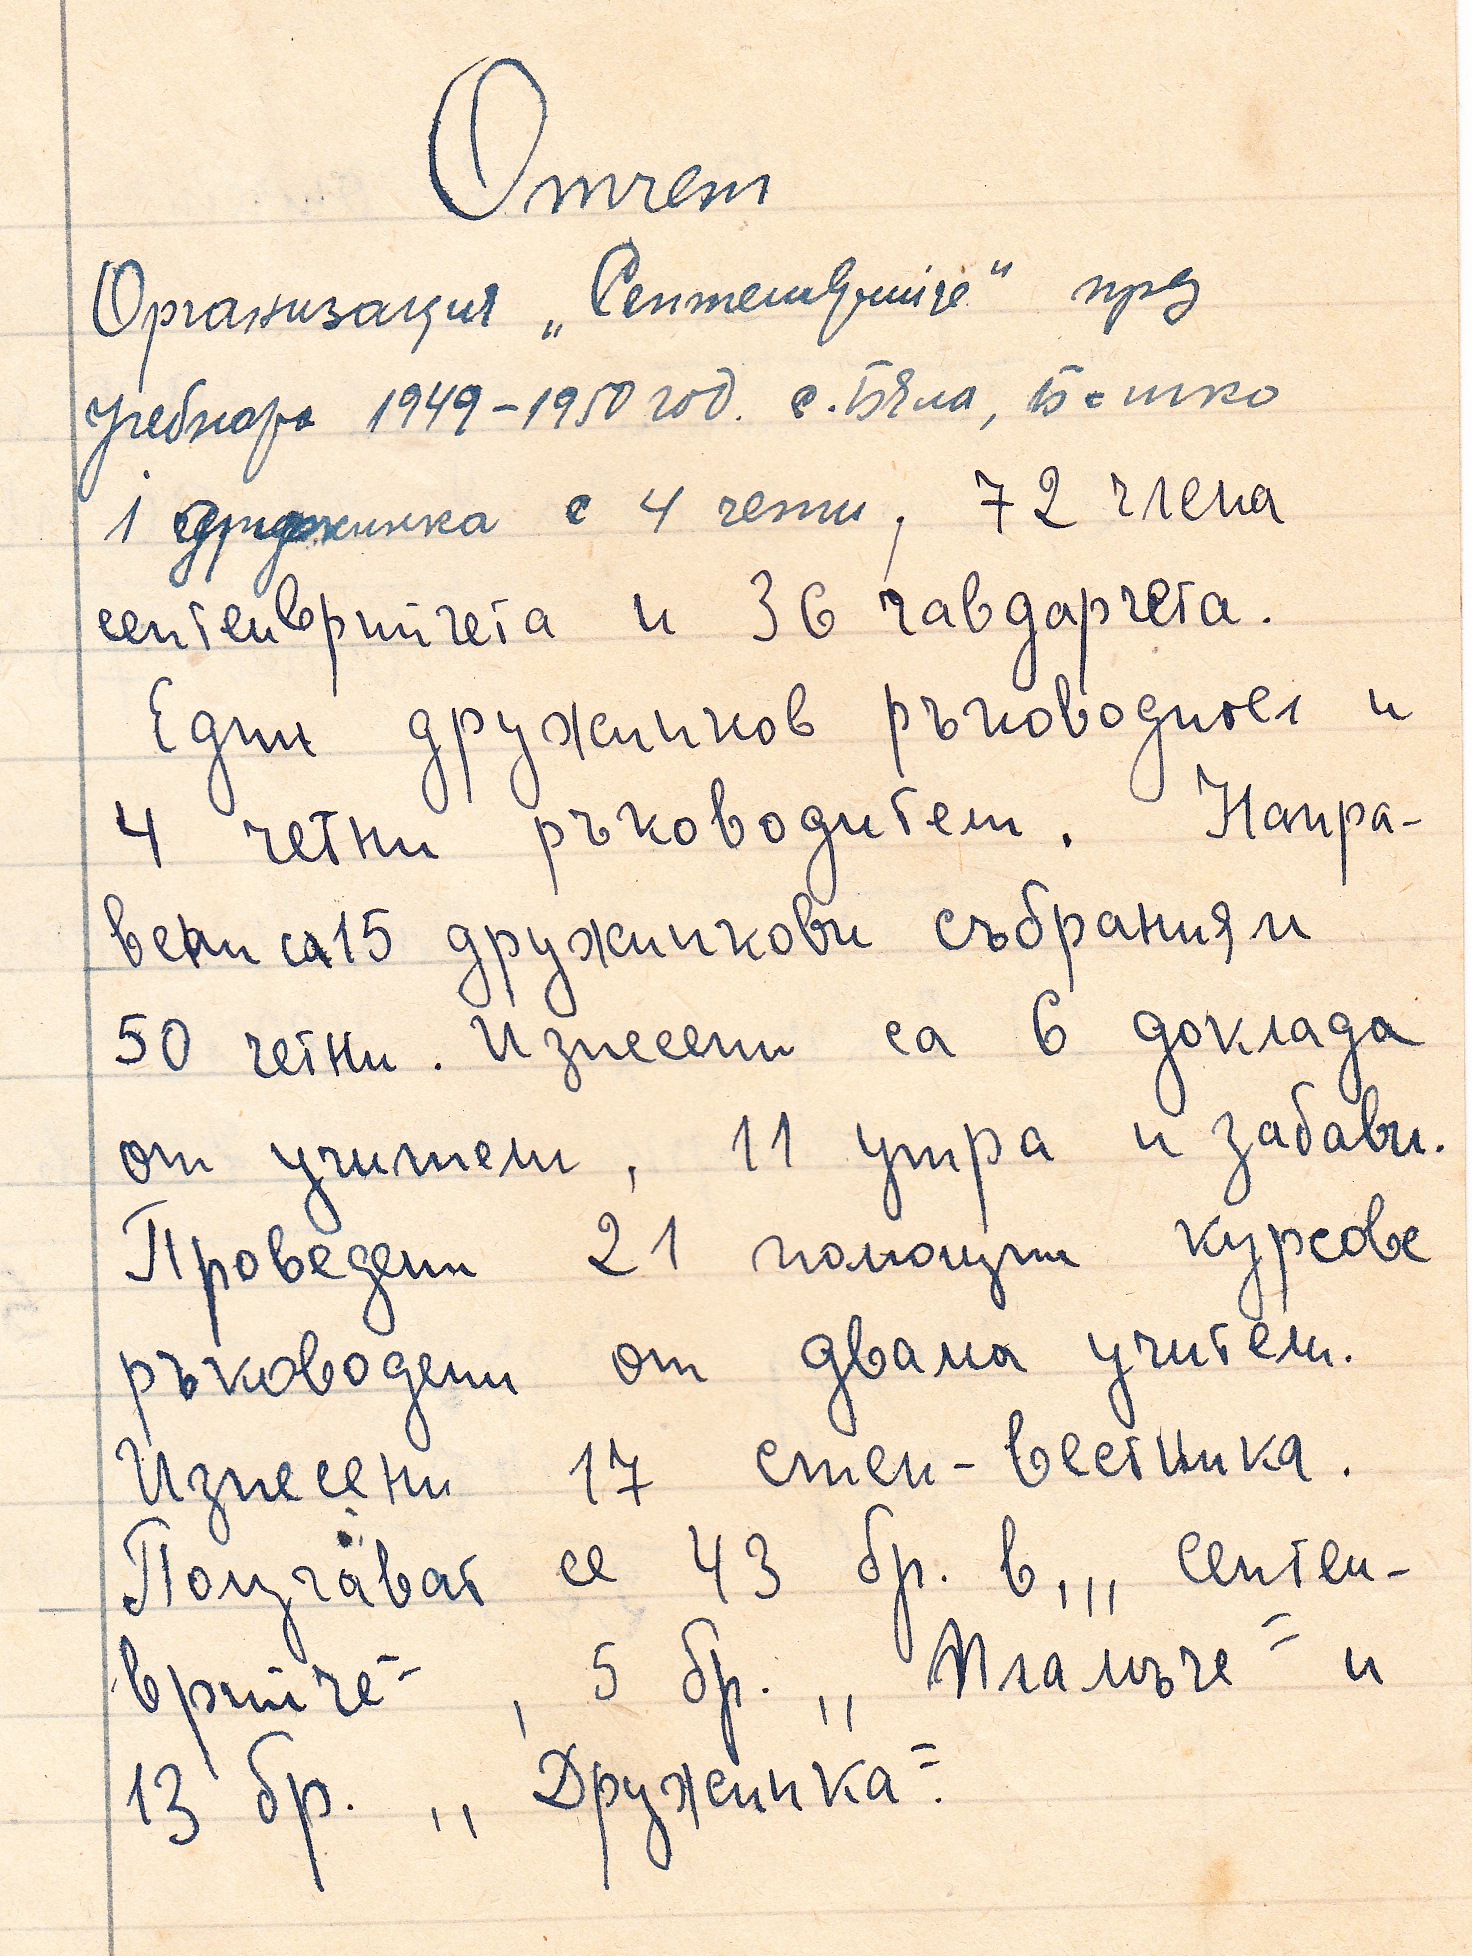 Отчет
Организация „Септемврийче“ през
учебната 1949-1950 год. с. Бяла,
1 дружинка с 4 чети, 72 члена
септемврийчета и 36 чавдарчета.
Един дружинков ръководител и
4 четни ръководители. Напра-
вени са 15 дружинкови събрания и
50 четни. Изнесени са 6 доклада
от учители, 11 утра и забави.
Проведени 21 помощни курсове
ръководени от двама учители.
Изнесени 17 стен-вестника.
Получават се 43 бр. в. „Септем-
врийче“, 5 бр. „Пламъче“ и
13 бр. „Дружинка“.